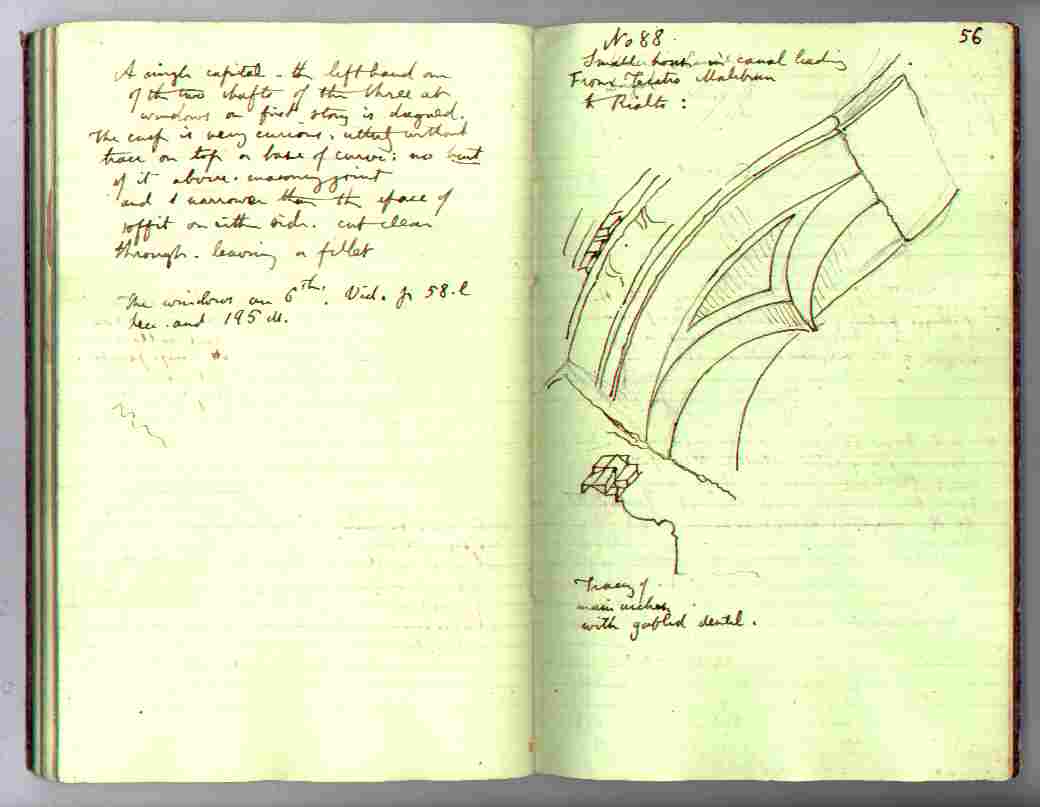 A single capital - the left hand one
of the two shafts of the three at
windows on first story is diagonal.
The cusp is very curious. utterly without
trace on top or base of curve: no hint
of it above. masonry joint
and narrower than the space of
soffit on either side. cut clean
through. leaving a fillet
The windows are 6th. Vid. p 58.l
lec. and 195 M.
56
No 88.
Smaller house in canal leading
From Teatro Malibran
to Rialto :
Tracery of
main arches
with gabled dentil.